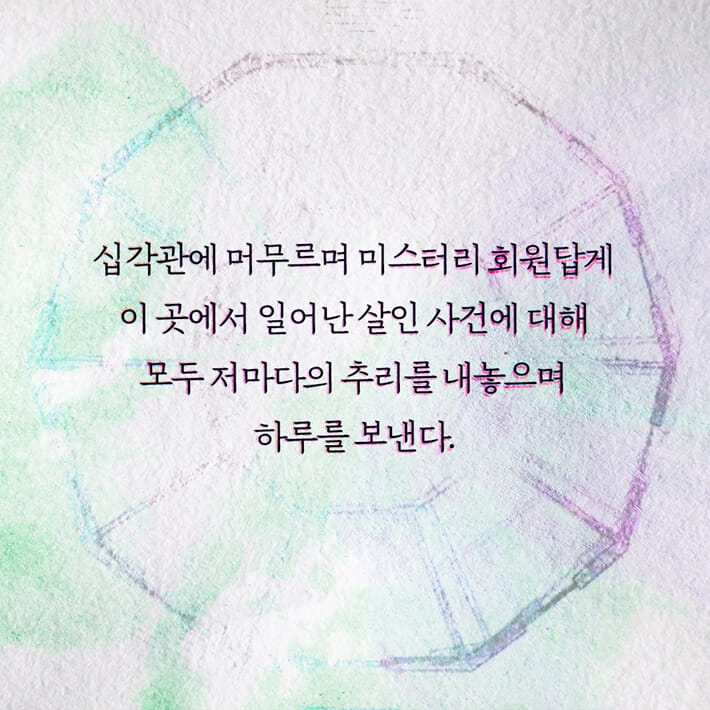 십각관에 머무르며 미스터리 회원답게
이 곳에서 일어난 살인 사건에 대해
모두 저마다의 추리를 내놓으며
하루를 보낸다.